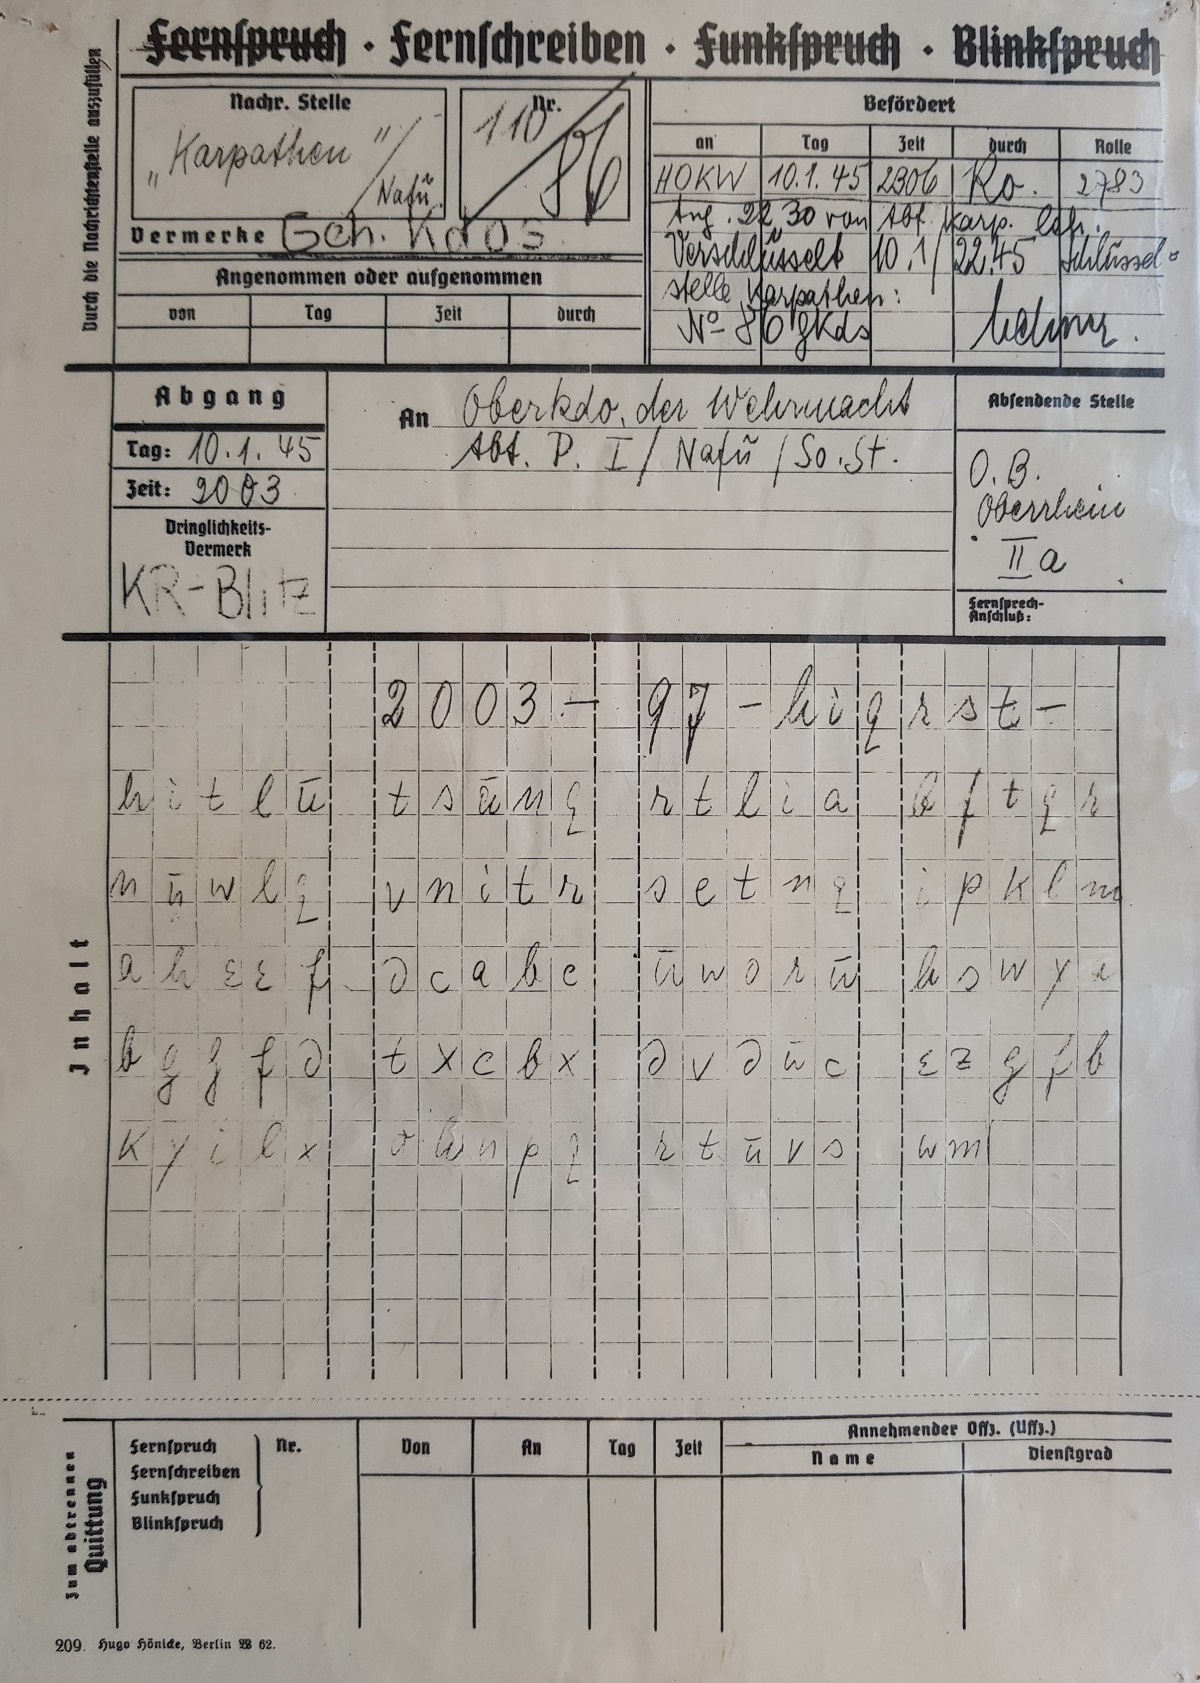 Fernspruch · Fernschreiben · Funkspruch · Blinkspruch
Durch die Nachrichtenstelle auszufüllen
Nachr. Stelle
„Karpathen"/
Nafü.
Nr.
110
86
Vermerke Geh. Kdos.
Angenommen oder aufgenommen
von Tag Zeit durch
Befördert
an Tag Zeit durch Rolle
HOKW 10.1.45 2306 Ro. 2783
Ang. 22.30 von Abt. Karp.
Verschlüsselt 10.1/22.45 Schlüssel-
stelle Karpathen:
No 86 gKds
Abgang
Tag: 10.1.45
Zeit: 2003
Dringlichkeits-
Vermerk
KR-Blitz
An Oberkdo. der Wehrmacht
Abt. P. I/ Nafü /So.St.
Absendende Stelle
O.B.
Oberrhein
IIa
Fernsprech-
Anschluß:
Inhalt
2003 - 97 - hiqrst -
hitlū tsūnq rtlia bftqr
nūwlq vnitr setnq ipklm
aheef dcabc ūworū hswyx
bggfd txcbx dvdūc ezgfb
kyilx ownpq rtūvs wm
Zum abtrennen
Quittung
Fernspruch
Fernschreiben
Funkspruch
Blinkspruch
Nr. Von An Tag Zeit
Annehmender Offz. (Uffz.)
Name Dienstgrad
209. Hugo Hönicke, Berlin W 62.